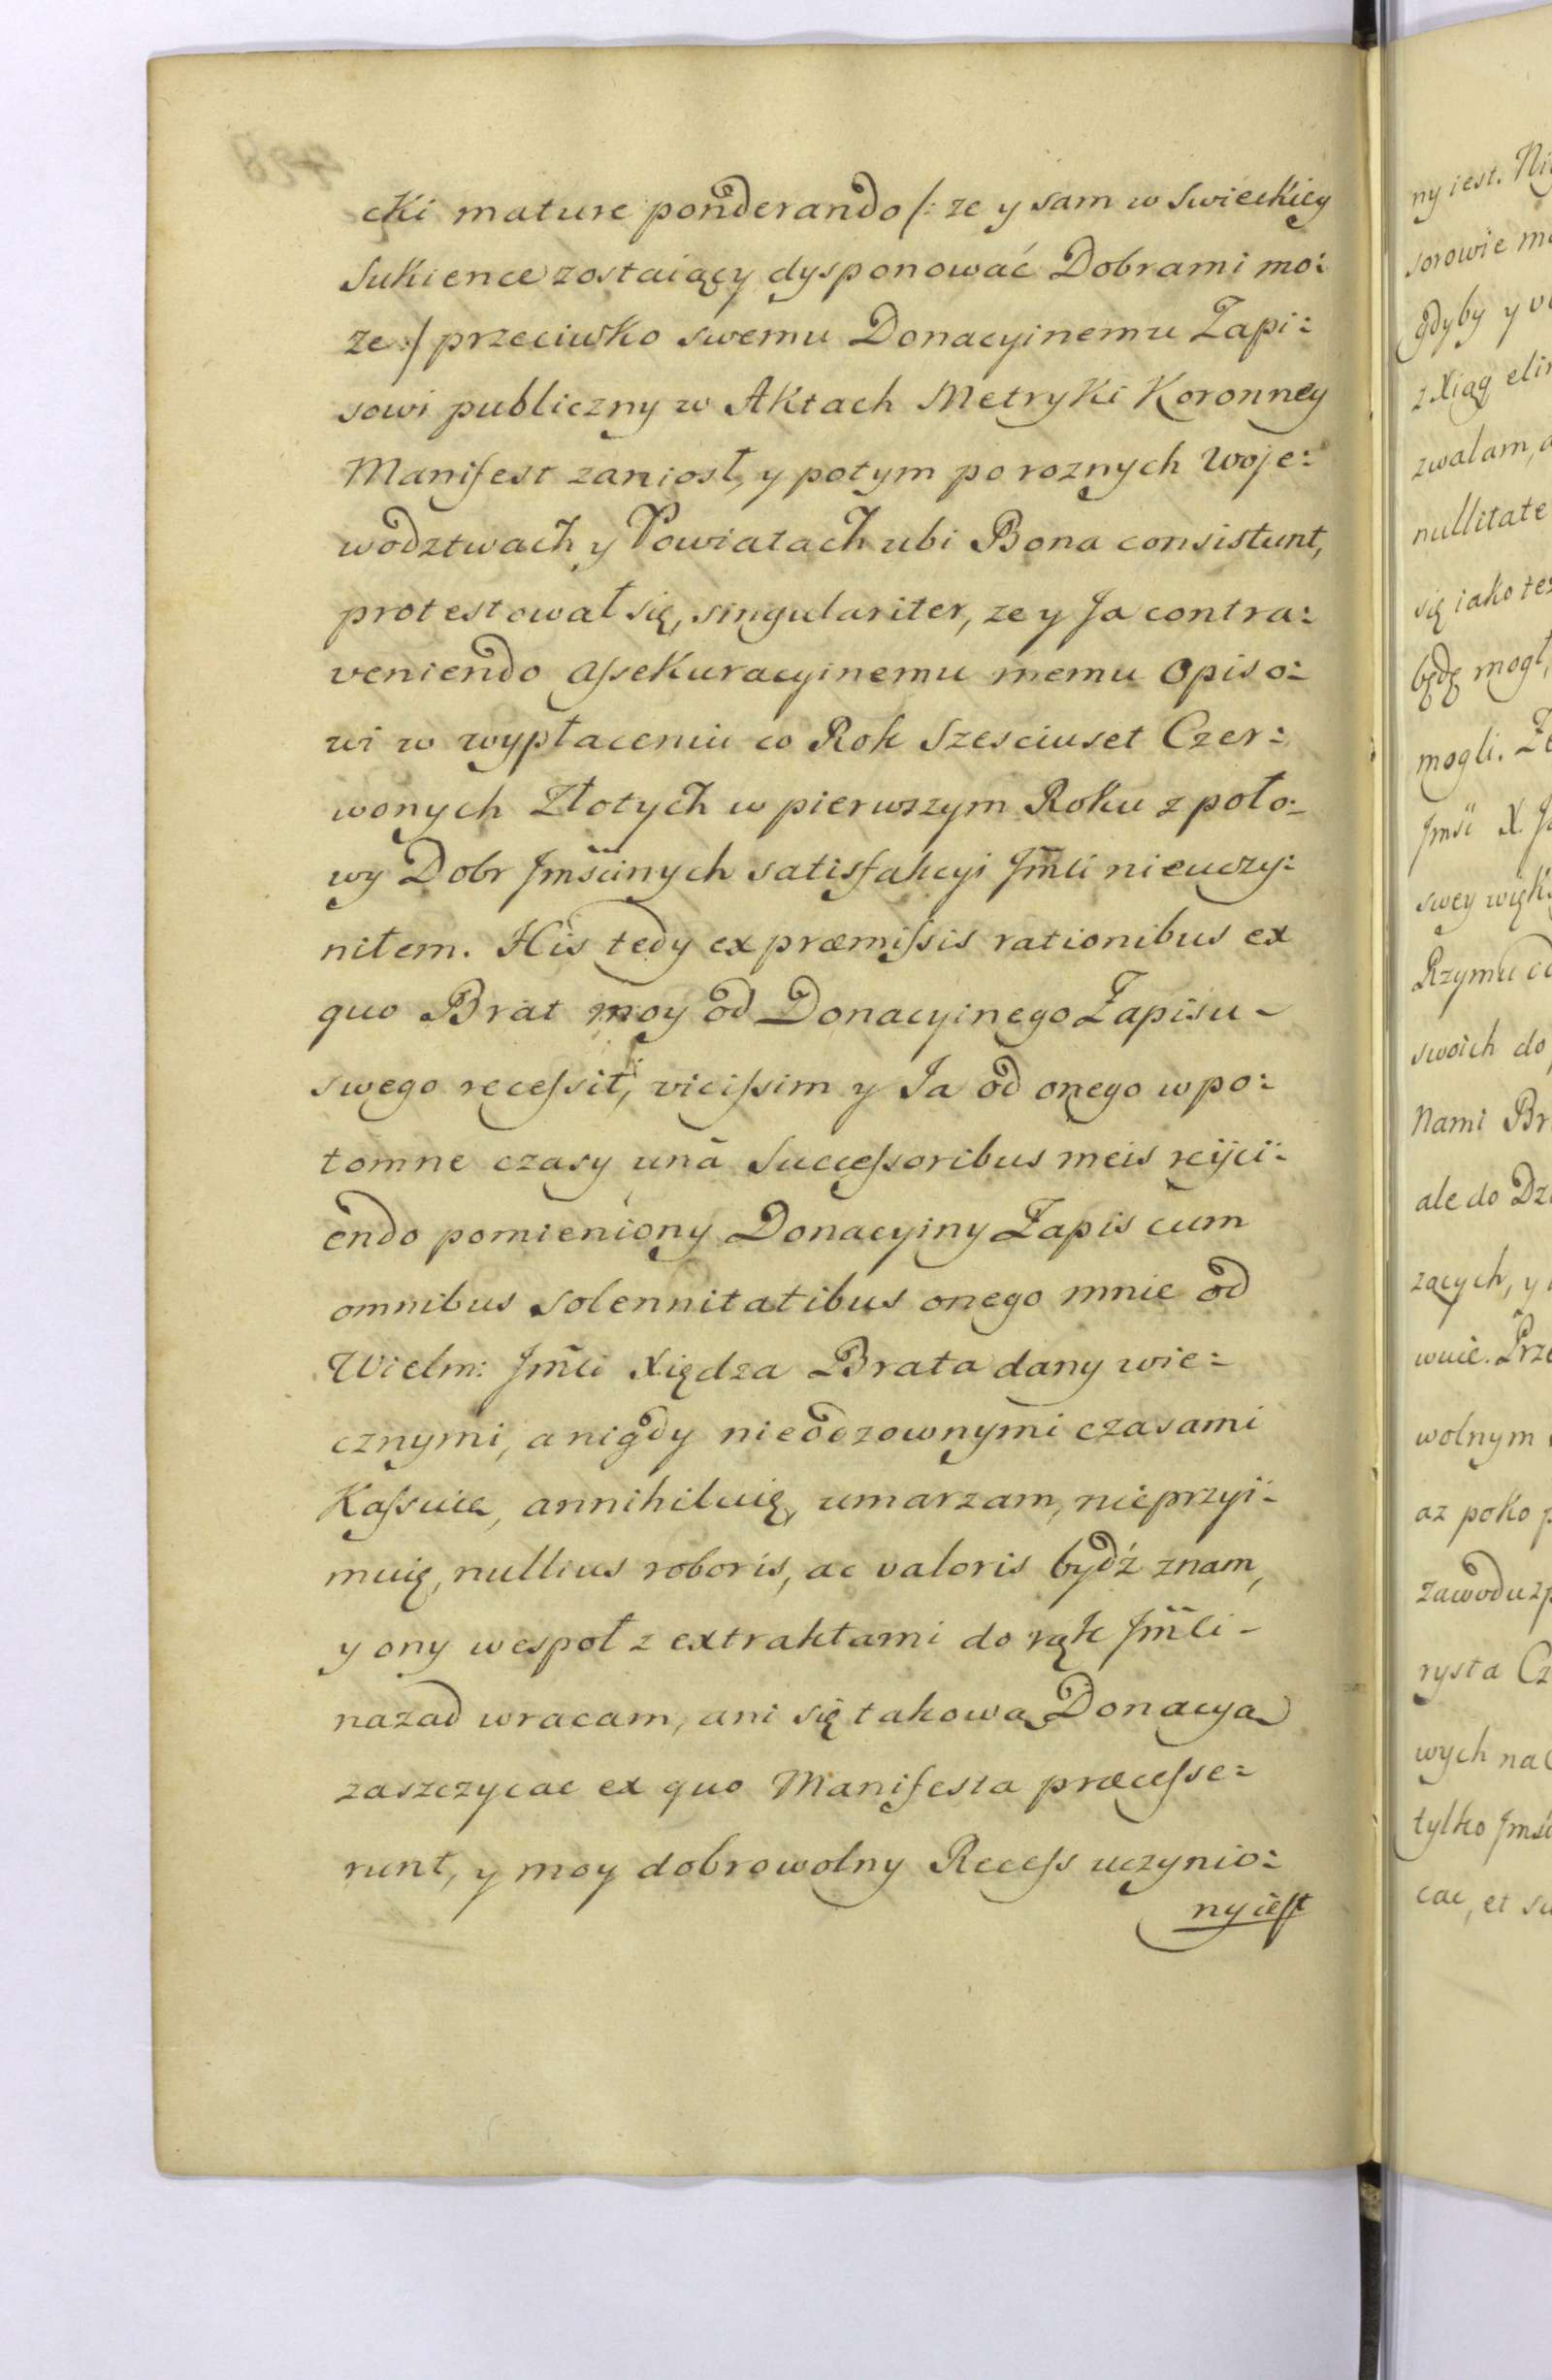 cki mature ponderando /: ze y sam w Swieckiey
Sukience zostaiący dysponować Dobrami mo:
ze :/ przeciwko swemu Donacyinemu Zapi:
sowi publiczny w Aktach Metryki Koronney
Manifest zaniosł, y potym po roznych Woje:
wodztwach y Powiatach ubi Bona consistunt,
protestował się, singulariter, ze y Ja contra:
veniendo Assekuracyinemu memu Opiso:
wi w wypłaceniu co Rok Szesciuset Czer:
wonych Złotych w pierwszym Roku z poło:
wy Dobr Jmścinych satisfakcyi Jmci nieuczy:
niłem. His tedy ex præmissis rationibus ex
quo Brat moy od Donacyinego Zapisu -
swego recessit, vicissim y Ja od onego w po:
tomne czasy unà Successoribus meis reijci:
endo pomieniony Donacyiny Zapis cum
omnibus solennitatibus onego mnie od
Wielm: Jmci Xiędza Brata dany wie:
cznymi, a nigdy nieodzownymi czasami
Kassuię, annihiluię, umarzam, nieprzyi:
muię, nullius roboris, ac valoris bydź znam,
y ony wespoł z extraktami do rąk Jmci -
nazad wracam, ani się takową Donacyą
zaszczycac ex quo Manifesta præcesse:
runt, y moy dobrowolny Recess uczynio:
ny iest
ny iest.
sorowie
gdyby y
z Xiąg
zwalam,
nullitate
się iako
będę mogł,
mogli.
Jmść X.
swey
Rzymu
swoich do
Nami
ale do
zących, y
wuie.
wolnym
az poko
zawodu
rysta
wych na
tylko
cac, et